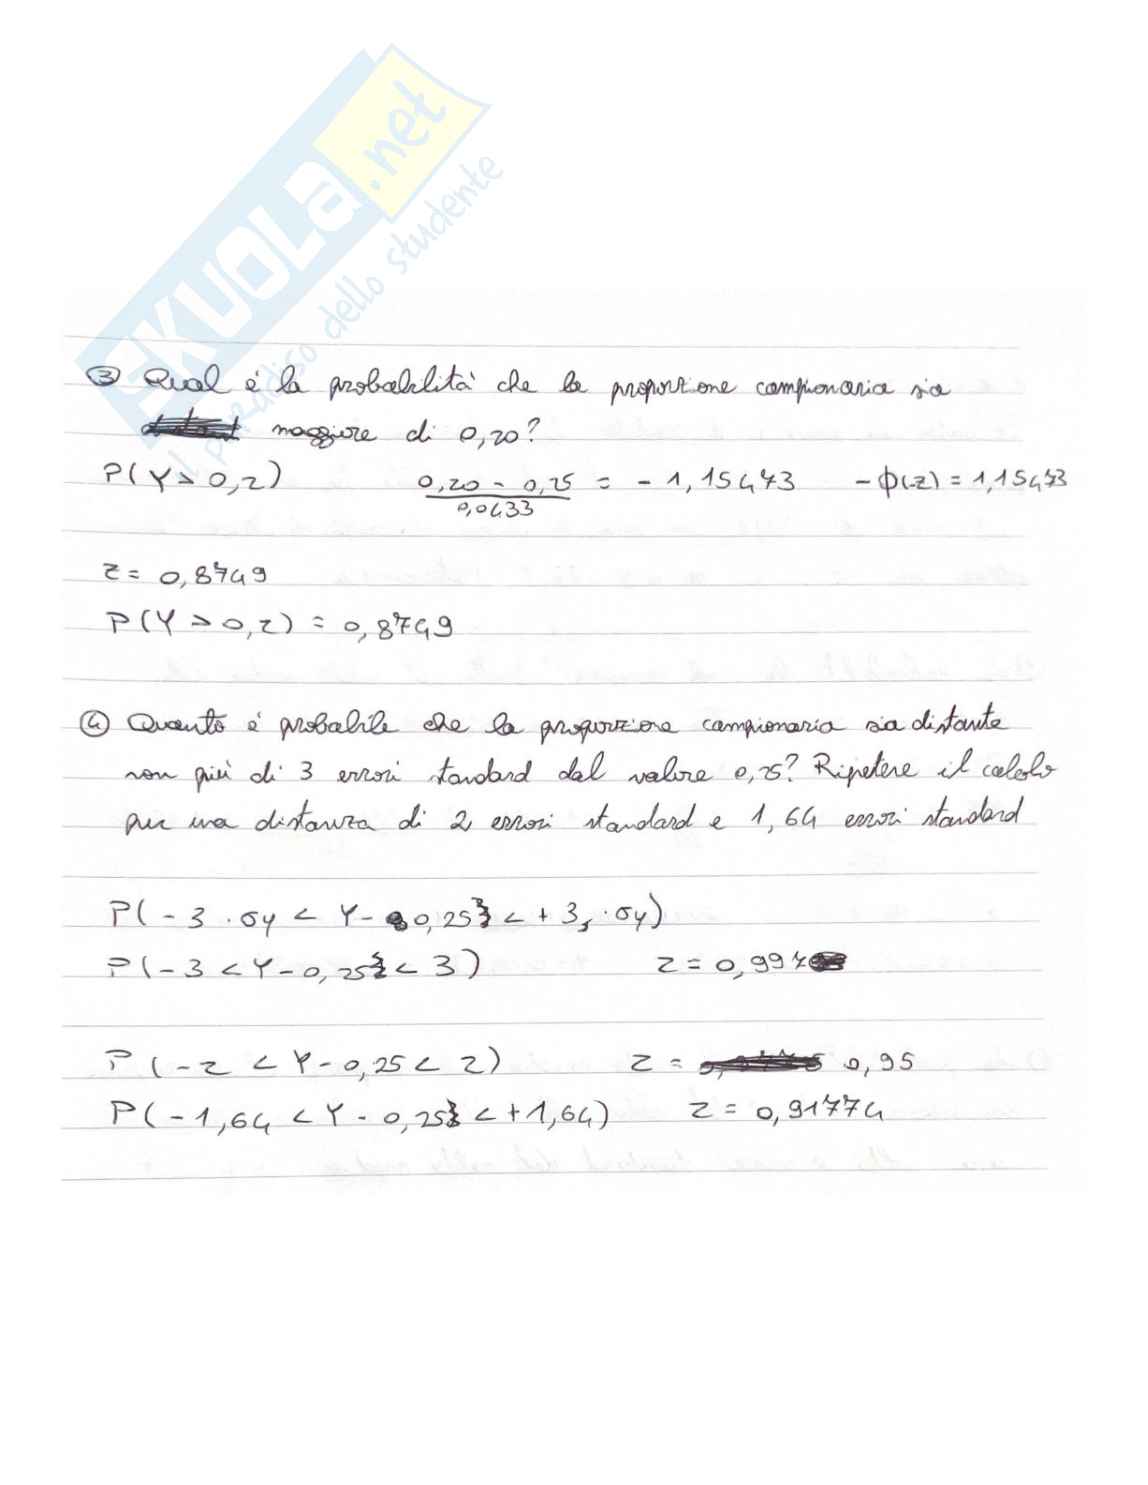 SKUOLA.net
il paradiso dello studente
③ Qual é la probabilità che la proporzione campionaria sia
maggiore di 0,20?
P(Y > 0,2) 0,20 - 0,25 = - 1,15473 - ϕ(-z) = 1,15473
0,0433
z = 0,8749
P(Y > 0,2) = 0,8749
④ Quanto é probabile che la proporzione campionaria sia distante
non più di 3 errori standard dal valore 0,25? Ripetere il calcolo
per una distanza di 2 errori standard e 1,64 errori standard
P(-3 · σy < Y - 0,25} < + 3, · σy)
P(-3 < Y - 0,25} < 3) z = 0,997
P(-2 < Y - 0,25 < 2) z = 0,95
P(-1,64 < Y - 0,25} < +1,64) z = 0,91774